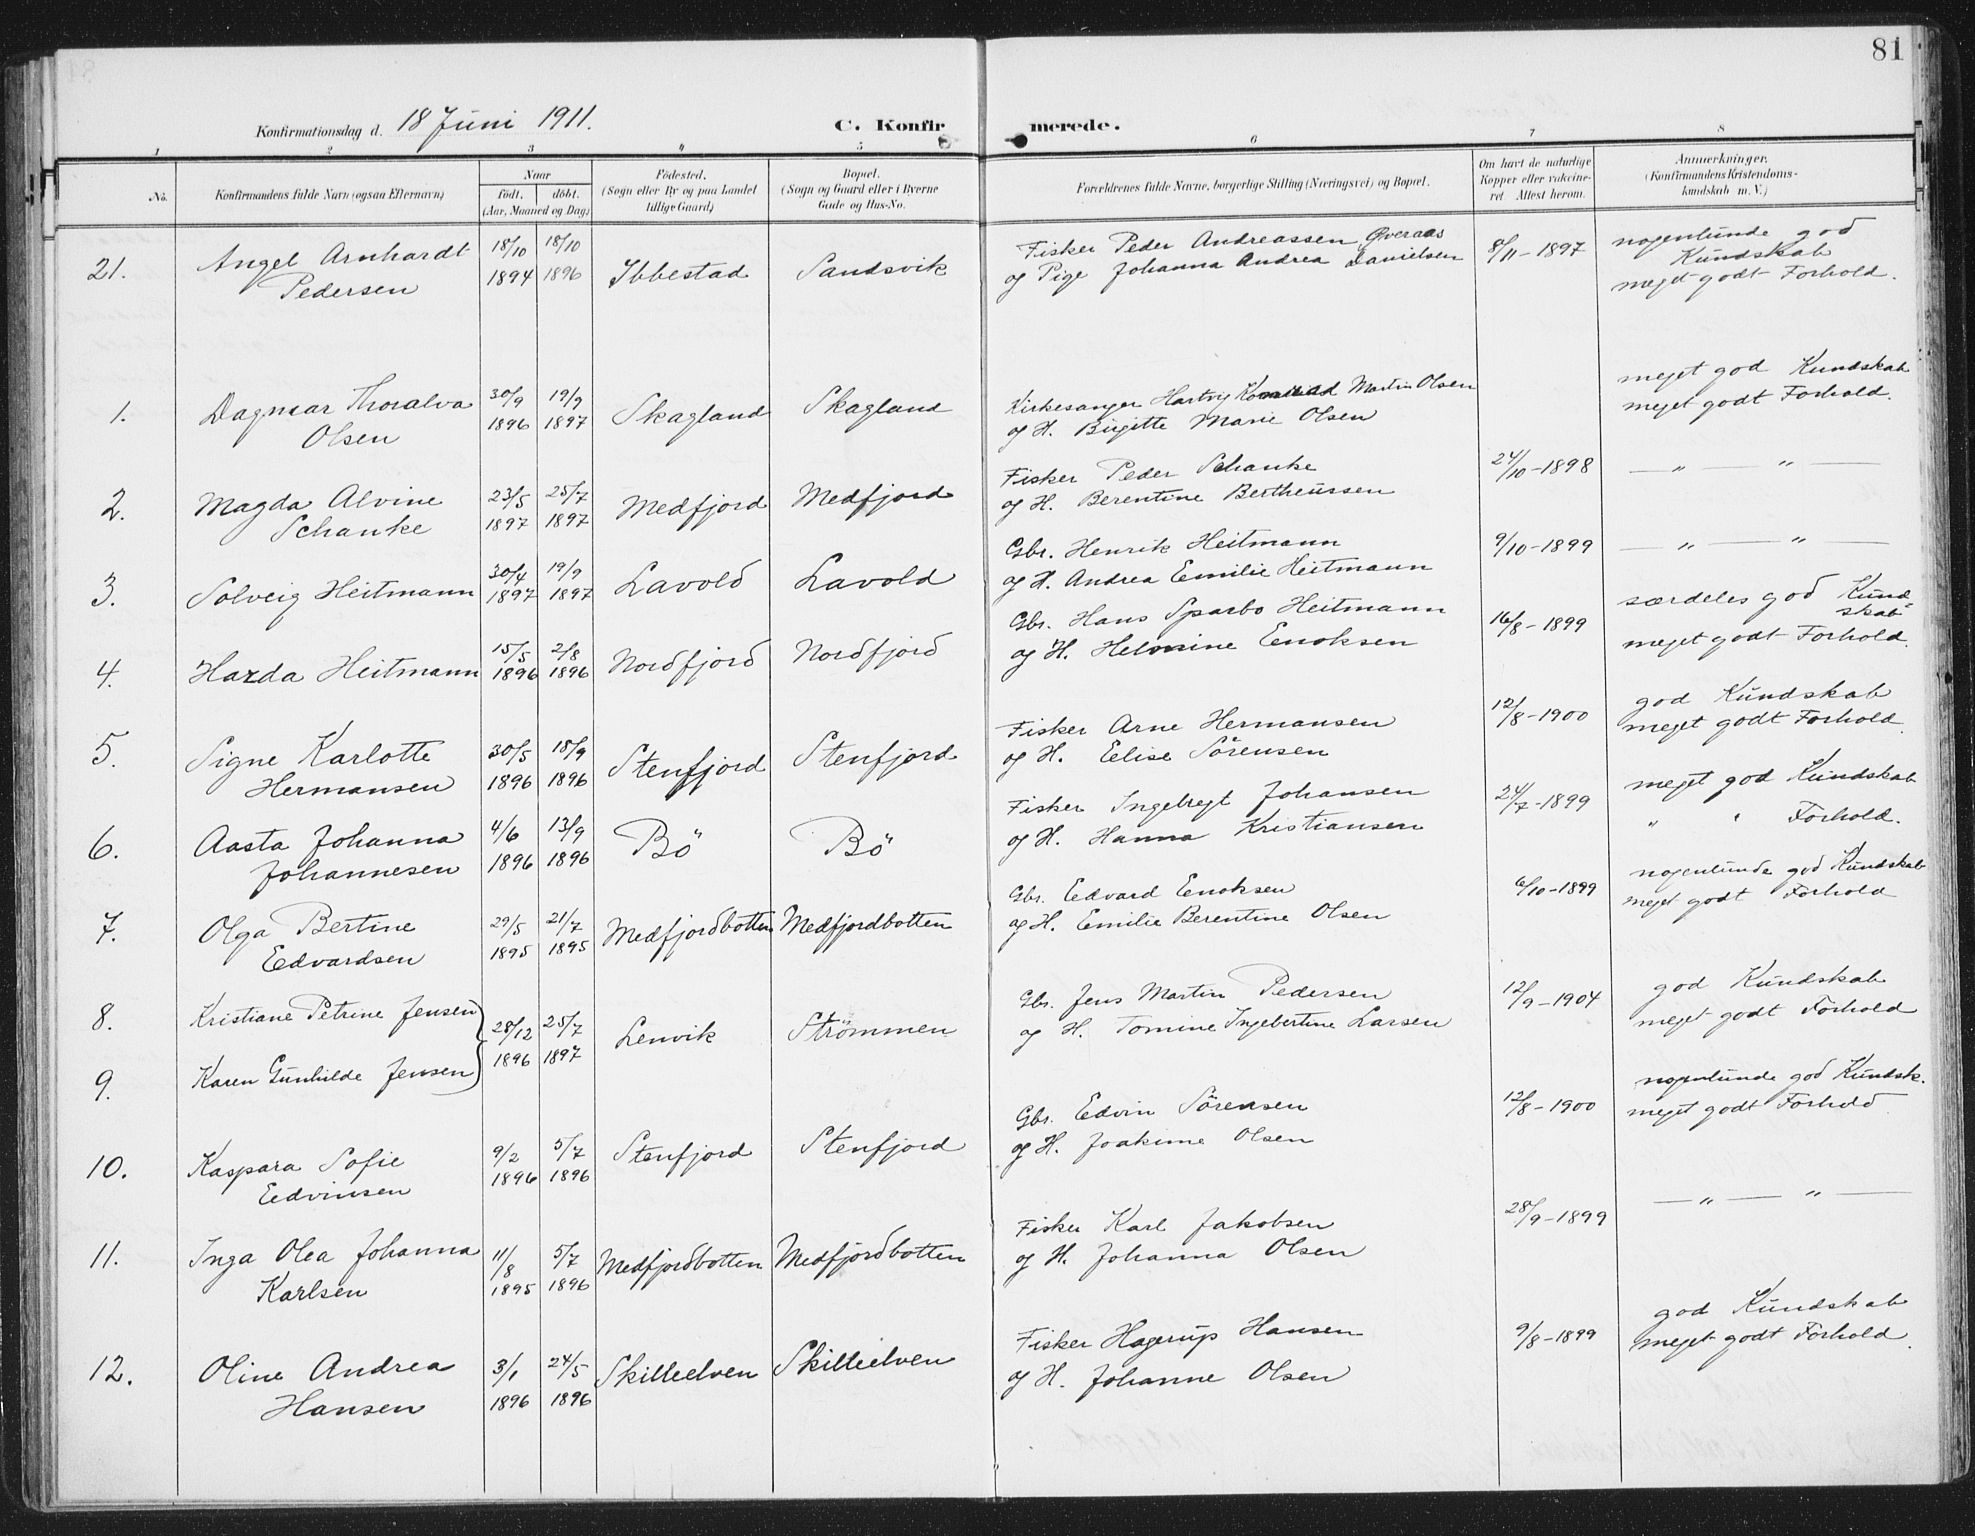 81
Konfirmationsdag d. 18 Juni 1911.
C. Konfirmerede.
1 2 3 4 5 6 7 8
No.
Konfirmandens fulde Navn (ogsaa Efternavn)
Naar
født. døbt.
(Aar, Maaned og Dag)
Fødested.
(Sogn eller By og paa Landet
tillige Gaard)
Bopæl.
(Sogn og Gaard eller i Byerne
Gade og Hus-No.
Forældrenes fulde Navne, borgerlige Stilling (Næringsvei) og Bopæl.
Om havt de naturlige
Kopper eller vakcine-
ret Attest herom.
Anmærkninger.
(Konfirmandens Kristendoms-
kundskab m. V.)
21. Angel Arnhardt 18/10 18/10
Pedersen 1894 1896 Ibbestad Sandsvik
Fisker Peder Andreassen Øveraas
og Pige Johanna Andrea Danielsen 8/11-1897
nogenlunde god
Kundskab
meget godt Forhold.
1. Dagmar Thoralva 30/9 19/9
Olsen 1896 1897 Skagland Skagland
Kirkesanger Hartvig Konrad Martin Olsen
og H. Birgitte Marie Olsen
meget god Kundskab
meget godt Forhold.
2. Magda Alvine 23/5 25/7
Schanke 1897 1897 Medfjord Medfjord
Fisker Peder Schanke
og H. Berentine Bertheussen 24/10-1898
— " — " —
3. Solveig Heitmann 30/4 19/9
1897 1897 Lavold Lavold
Gbr. Henrik Heitmann
og H. Andrea Emilie Heitmann 9/10-1899
— " — " —
4. Hazda Heitmann 15/5 2/8
1896 1896 Nordfjord Nordfjord
Gbr. Hans Sparbo Heitmann
og H. Helmine Enoksen 16/8-1899
særdeles god Kund-
skab
meget godt Forhold.
5. Signe Karlotte 30/5 18/9
Hermansen 1896 1896 Stenfjord Stenfjord
Fisker Arne Hermansen
og H. Elise Sörensen 12/8-1900
god Kundskab
meget godt Forhold
6. Aasta Johanna 4/6 13/9
Johannesen 1896 1896 Bö Bö
Fisker Ingebregt Johansen
og H. Hanna Kristiansen 24/7-1899
meget god Kundskab
" " Forhold.
7. Olga Bertine 29/5 21/7
Edvardsen 1895 1895 Medfjordbotten Medfjordbotten
Gbr. Edvard Enoksen
og H. Emilie Berentine Olsen 6/10-1899
nogenlunde god Kundskab
meget godt Forhold
8. Kristiane Petrine Jensen
9. Karen Gunhilde Jensen
28/12 25/7
1896 1897 Lenvik Strömmen
Gbr. Jens Martin Pedersen
og H. Tomine Ingebertine Larsen 12/9-1904
god Kundskab
meget godt Forhold
10. Kaspara Sofie 9/2 5/7
Edvinsen 1896 1896 Stenfjord Stenfjord
Gbr. Edvin Sörensen
og H. Joakime Olsen 12/8-1900
nogenlunde god Kundsk.
meget godt Forhold
11. Inga Olea Johanna 11/8 5/7
Karlsen 1895 1896 Medfjordbotten Medfjordbotten
Fisker Karl Jakobsen
og H. Johanna Olsen 28/9-1899
— " — " —
12. Oline Andrea 3/1 24/5
Hansen 1896 1896 Skilleelven Skilleelven
Fisker Hagerup Hansen
og H. Johanne Olsen 9/8-1899
god Kundskab
meget godt Forhold.